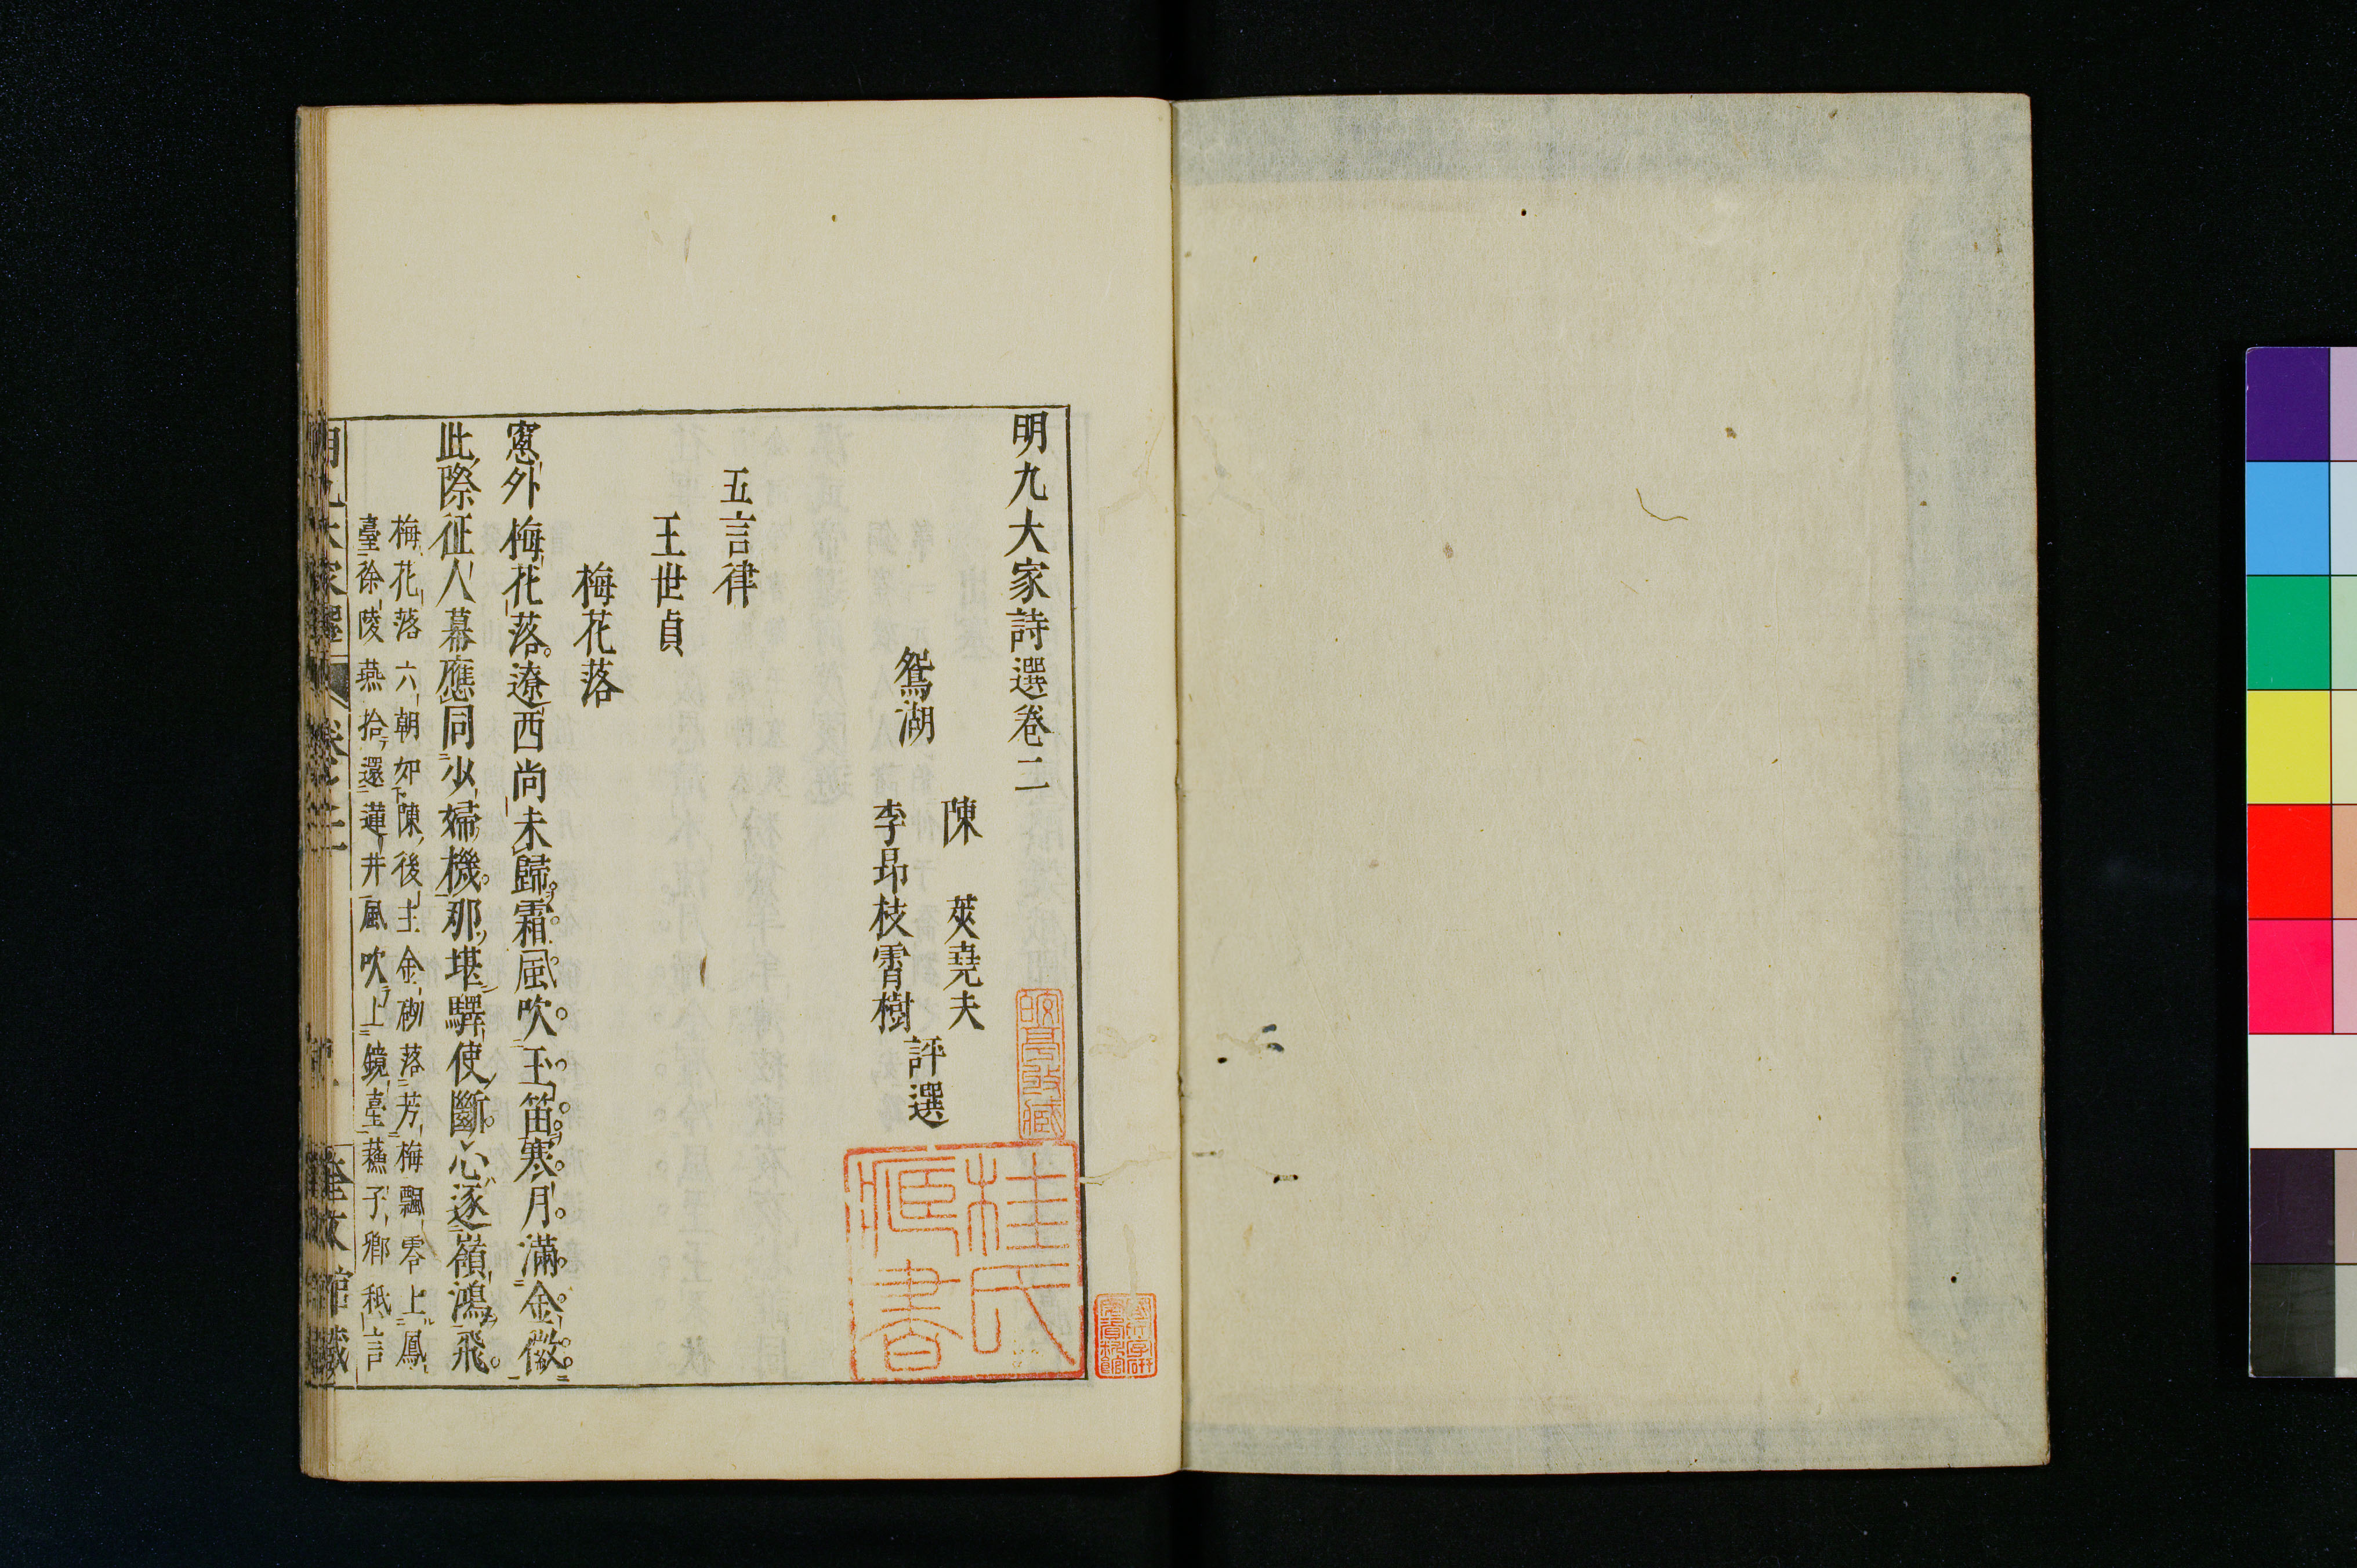 明九大家詩選卷二
陳 莢堯夫
鴛湖 評選
李昂枝霄樹
五言律
王世貞
梅花落
窻外梅花落遼西尚未歸霜風吹玉笛寒月滿金徽
此際征人幕應同少婦機那堪驛使斷心逐嶺鴻飛
梅花落六朝如陳後主金砌落芳梅飄零上鳳
臺徐陵燕拾還蓮井風吹上鏡臺蘓子卿秪言
桂氏藏書